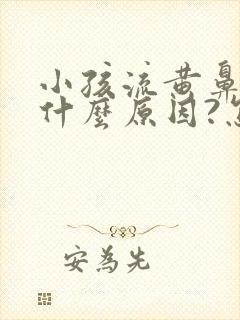 小孩流黄鼻
什麼原因?
安為先